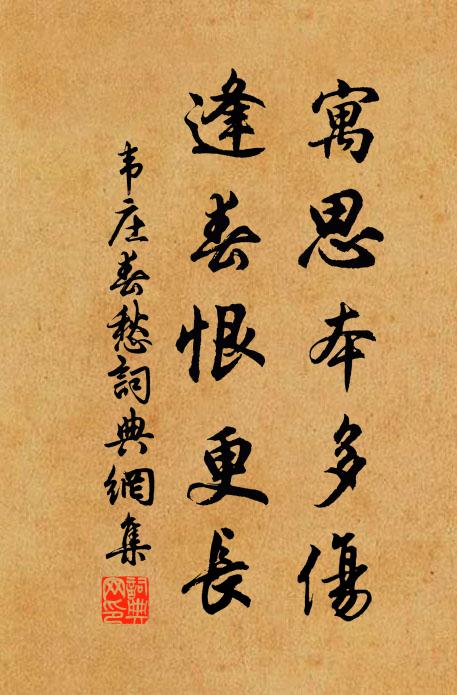 寓思本多傷
逢春恨更長
韦庄春愁詞典網集
詞典网印